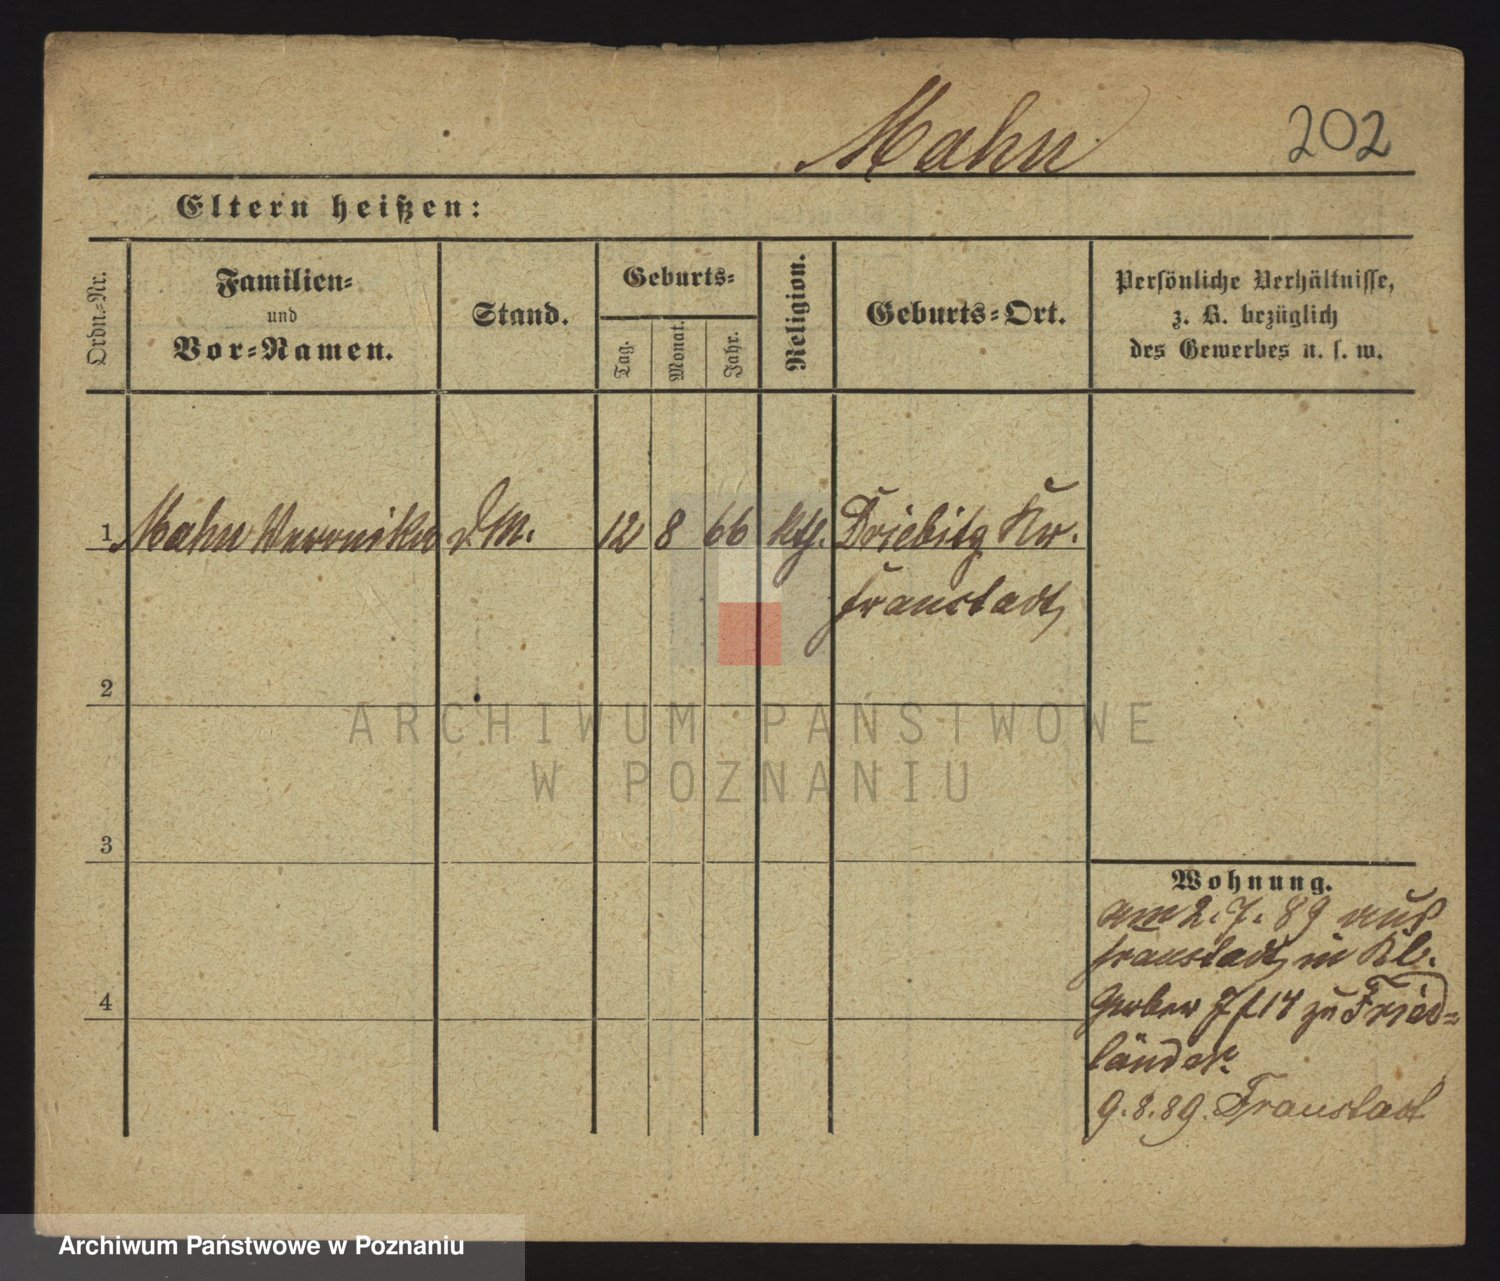 Mahn
202
Eltern heißen:
Ordn.-Nr.
Familien-
und
Vor-Namen.
Stand.
Geburts-
Tag.
Monat.
Jahr.
Religion.
Geburts-Ort.
Persönliche Verhältnisse,
z. B. bezüglich
des Gewerbes u. s. w.
1 Mahn Veronika D. M. 12 8 66 kth. Driebitz Kr.
Fraustadt
2
3
4
Wohnung.
am 2. 7. 89 aus
Fraustadt in Kl.
Gerber 14 zu Fried-
länder.
9. 8. 89. Fraustadt
ARCHIWUM PAŃSTWOWE
W POZNANIU
Archiwum Państwowe w Poznaniu